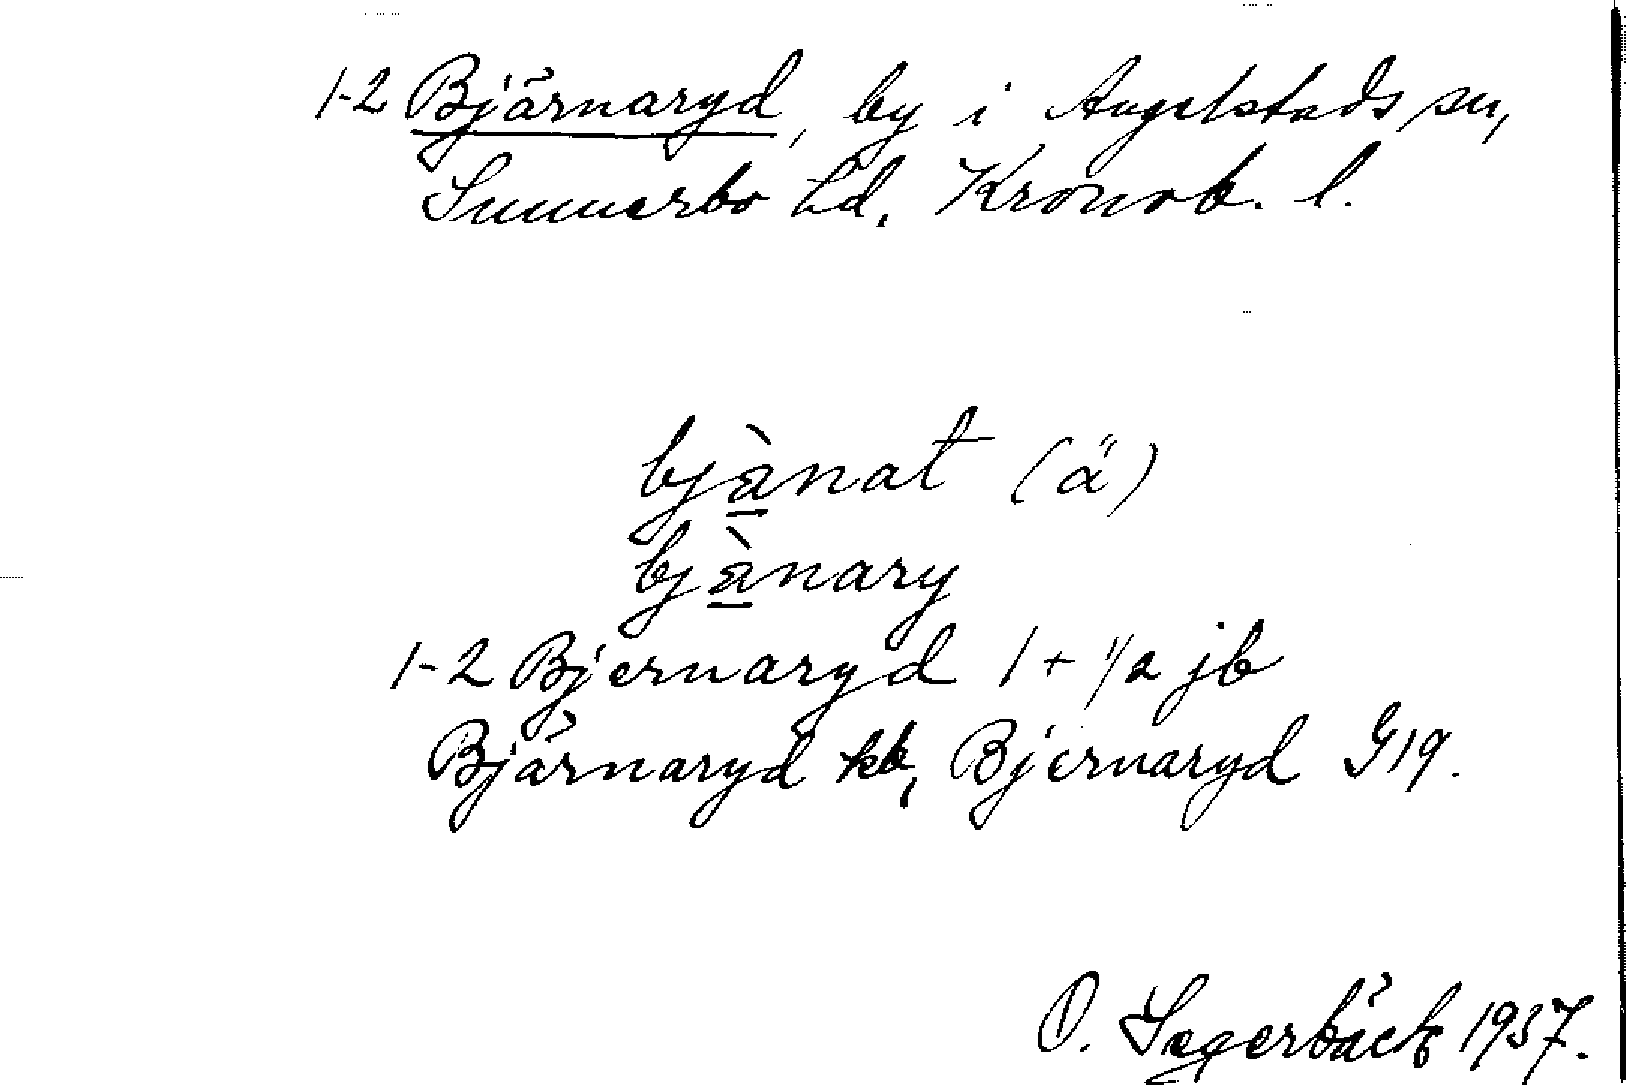 1-2 Bjärnaryd, by i Angelstads sn,
Sunnerbo hd, Kronob. l.
bjànat (ä)
bjànary
1-2 Bjernaryd 1 + 1/2 jb
Bjärnaryd kk, Bjernaryd G19.
O. Segerbäck 1937.